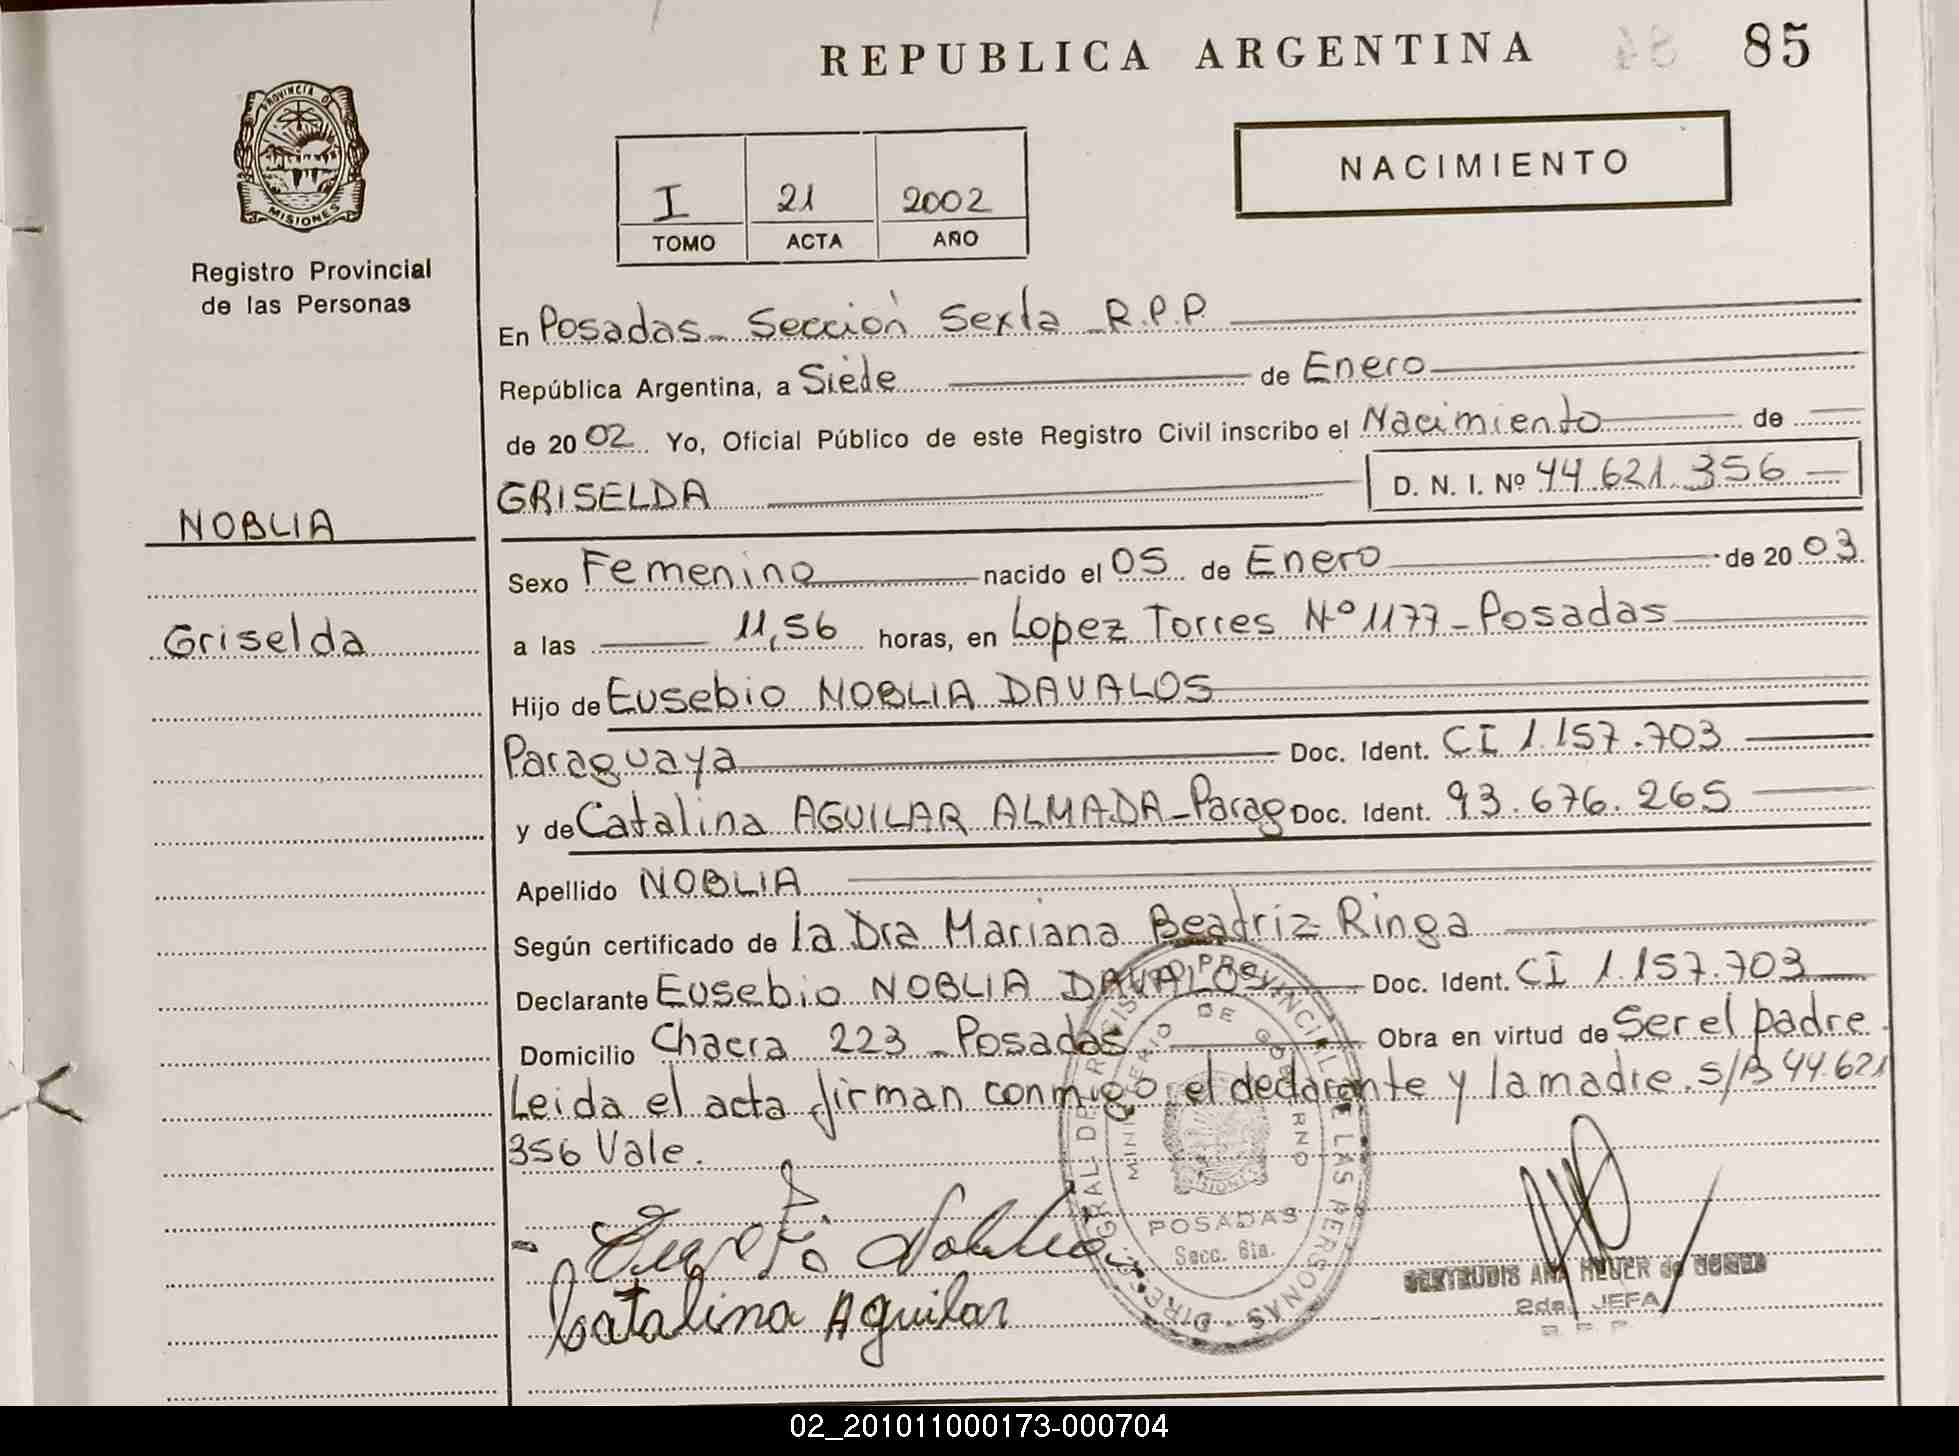 REPUBLICA ARGENTINA 85
PROVINCIA DE
MISIONES
Registro Provincial
de las Personas
I 21 2002
TOMO ACTA AÑO
NACIMIENTO
En Posadas - Sección Sexta - R.P.P
República Argentina, a Siete de Enero
de 2002 Yo, Oficial Público de este Registro Civil inscribo el Nacimiento de
GRISELDA D. N. I. Nº 44.621.356
NOBLIA
Griselda
Sexo Femenino nacido el 05 de Enero de 2003
a las 11,56 horas, en Lopez Torres Nº 1177 - Posadas
Hijo de Eusebio NOBLIA DAVALOS
Paraguaya Doc. Ident. CI 1.157.703
y de Catalina AGUILAR ALMADA - Parag Doc. Ident. 93.676.265
Apellido NOBLIA
Según certificado de la Dra Mariana Beatriz Ringa
Declarante Eusebio NOBLIA DAVALOS Doc. Ident. CI 1.157.703
Domicilio Chacra 223 - Posadas Obra en virtud de Ser el padre.
Leida el acta firman conmigo el declarante y la madre. S/B 44.621
356 Vale.
REGISTRO PROVINCIAL DE LAS PERSONAS
MINISTERIO DE GOBIERNO
MISIONES
POSADAS
Secc. 6ta.
Catalina Aguilar
GERTRUDIS ANA HEUER de
2da. JEFA
R. P. P.
02_201011000173-000704